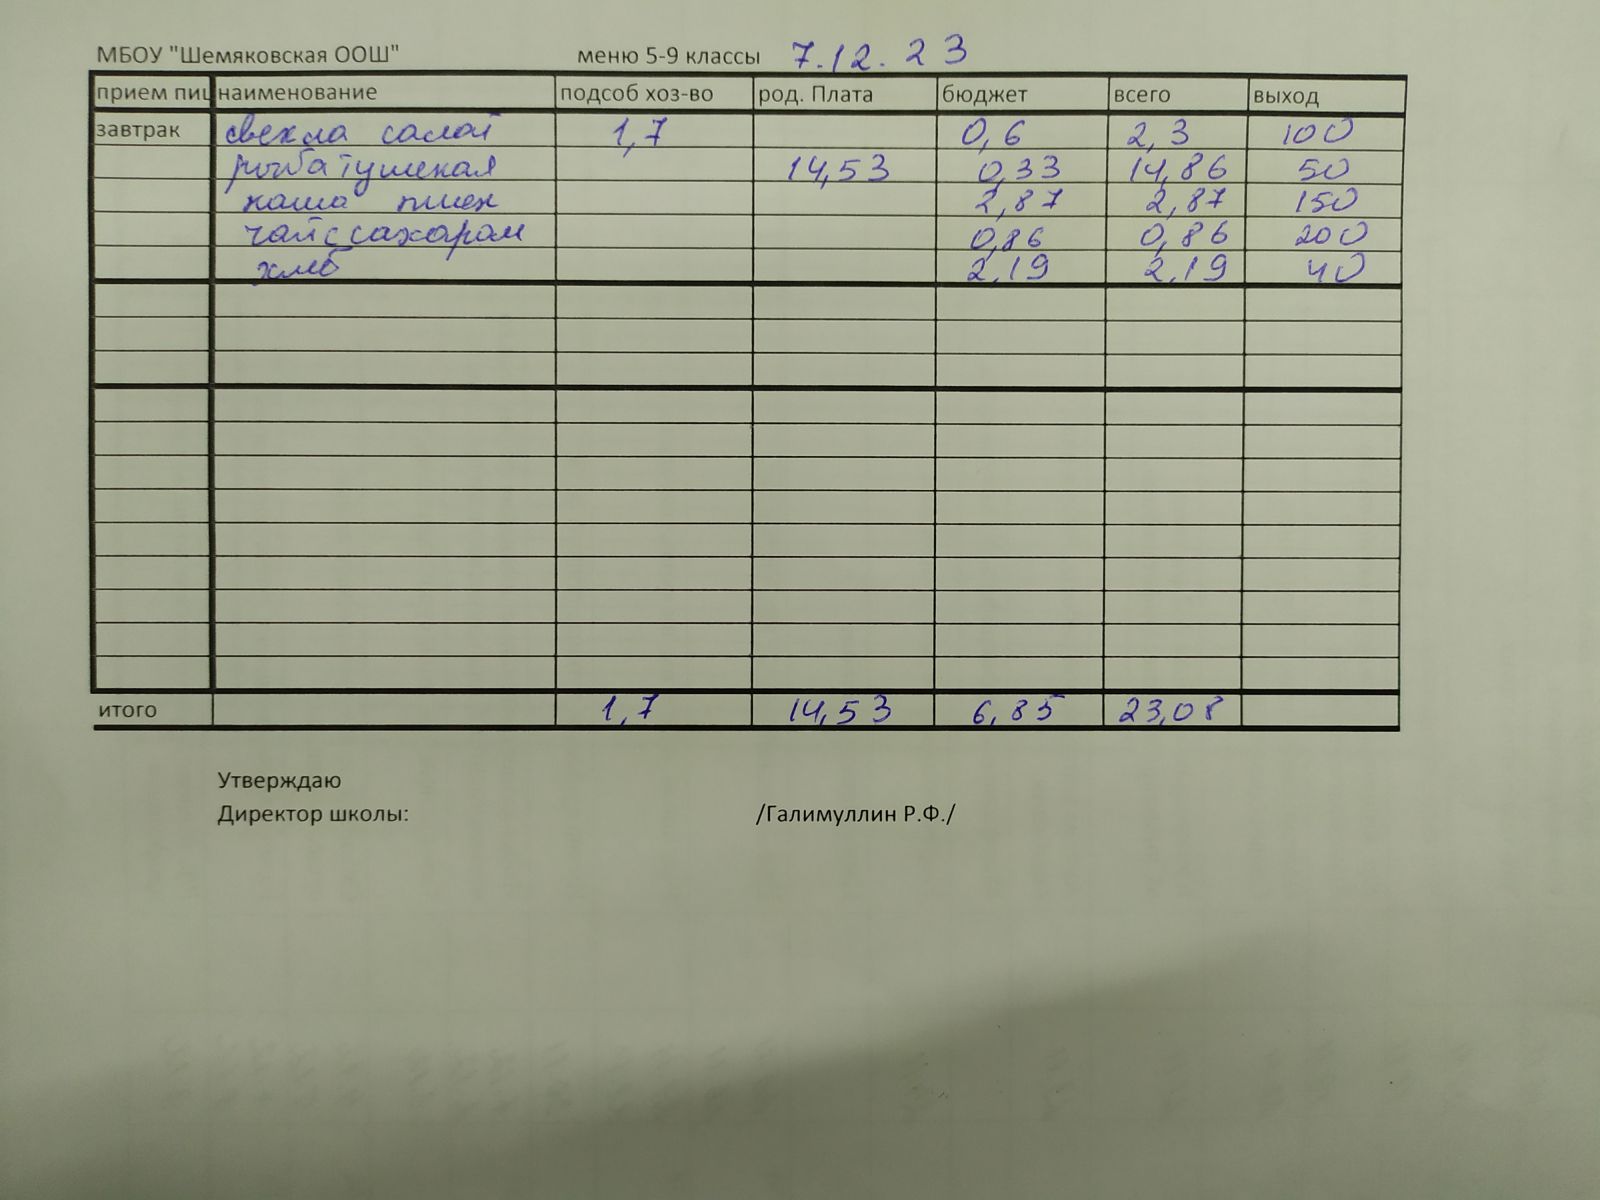 МБОУ "Шемяковская ООШ" меню 5-9 классы 7.12.23
прием пиц наименование подсоб хоз-во род. Плата бюджет всего выход
завтрак свекла салат 1,7 0,6 2,3 100
рыба тушеная 14,53 0,33 14,86 50
каша пшен 2,87 2,87 150
чай с сахаром 0,86 0,86 200
хлеб 2,19 2,19 40
итого 1,7 14,53 6,85 23,08
Утверждаю
Директор школы: /Галимуллин Р.Ф./